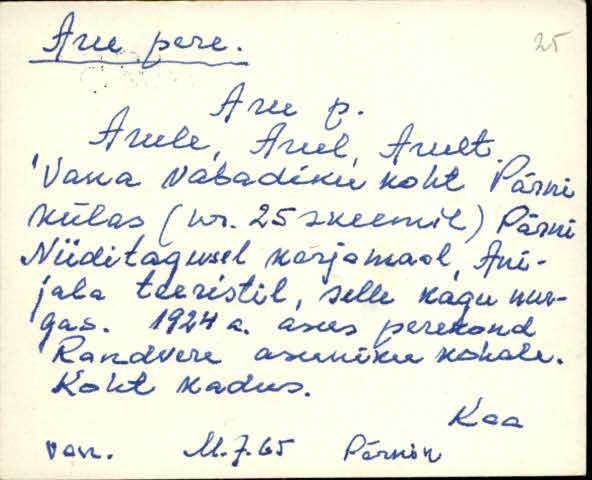 Aru pere.
25
Aru p.
Arule, Arul, Arult.
Vana vabadiku koht Pärni
külas (nr. 25 skeemil) Pärni
Niiditagusel karjamaal, Ani-
jala teeristil, selle kagu nur-
gas. 1924 a. asus perekond
Randvere asuniku kohale.
Koht kadus.
Kaa
van. M.J. 65 Pärnin